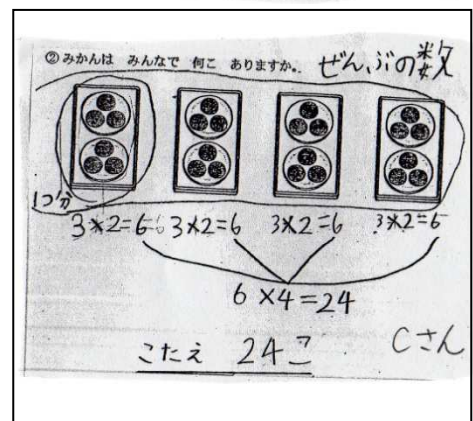 ② みかんは みんなで 何こ ありますか。 ぜんぶの数
1つ分
3×2=6 3×2=6 3×2=6 3×2=6
6×4=24
こたえ 24こ Cさん